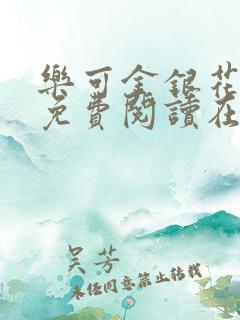 樂可金銀花
免費閱讀在
吴芳
未经同意禁止转载